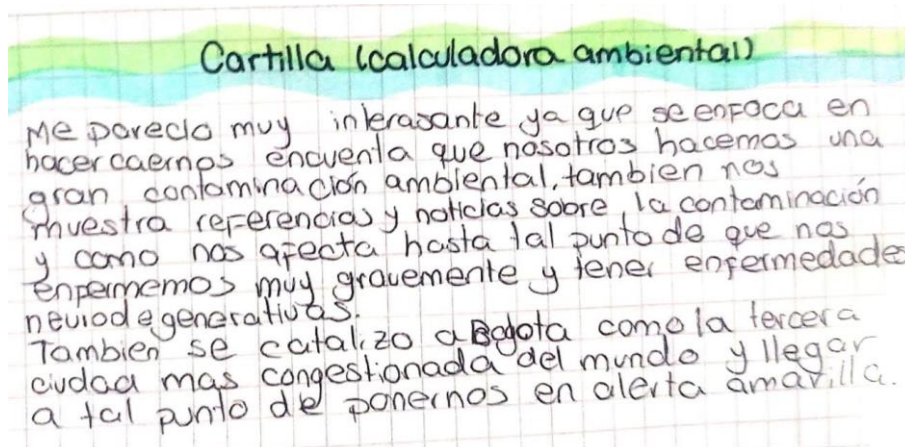 Cartilla (calculadora ambiental)
Me parecio muy interasante ya que se enfoca en
hacer caernos encuenta que nosotros hacemos una
gran contaminación ambiental, tambien nos
muestra referencias y noticias sobre la contaminación
y como nos afecta hasta tal punto de que nos
enfermemos muy gravemente y tener enfermedades
neurodegenerativas.
Tambien se catalizo a Bogota como la tercera
ciudad mas congestionada del mundo y llegar
a tal punto de ponernos en alerta amarilla.